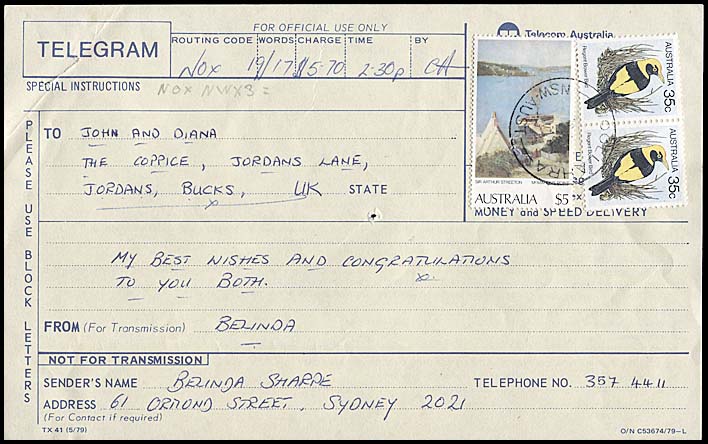 FOR OFFICIAL USE ONLY
TELEGRAM
ROUTING CODE WORDS CHARGE TIME BY
NOX 19/17 $5-70 2:30p CA
Telecom Australia
SPECIAL INSTRUCTIONS NOX NWX3 =
PLEASE USE BLOCK LETTERS
TO JOHN AND DIANA
THE COPPICE, JORDANS LANE,
JORDANS, BUCKS, UK STATE
SIR ARTHUR STREETON
AUSTRALIA $5
AUSTRALIA 35c
Regent Bower Bird
AUSTRALIA 35c
Regent Bower Bird
NSW-AUST
MONEY and SPEED DELIVERY
MY BEST WISHES AND CONGRATULATIONS
TO YOU BOTH.
FROM (For Transmission) BELINDA
NOT FOR TRANSMISSION
SENDER'S NAME BELINDA SHARPE TELEPHONE NO. 357 4411
ADDRESS 61 ORMOND STREET, SYDNEY 2021
(For Contact if required)
TX 41 (5/79) O/N C53674/79-L